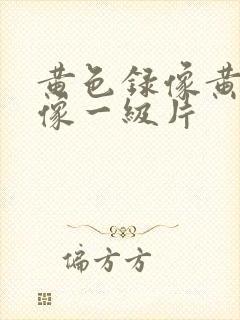 黄色録像黄
像一級片
偏方方